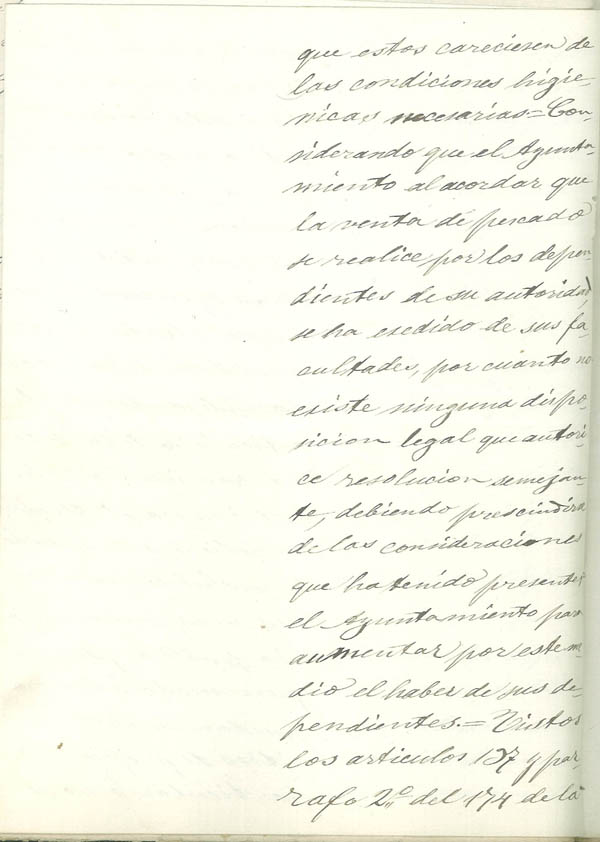 que estos careciesen de
las condiciones higie-
nicas necesarias = Con-
siderando que el Ayunta-
miento al acordar que
la venta de pescado
se realice por los depen-
dientes de su autoridad,
se ha esedido de sus fa-
cultades, por cuanto no
esiste ninguna dispo-
sicion legal que autori-
ce resolucion semejan-
te, debiendo prescindirse
de las consideraciones
que ha tenido presentes
el Ayuntamiento para
aumentar por este me-
dio el haber de sus de-
pendientes. = Vistos
los articulos 137 y par-
rafo 2º del 174 de la